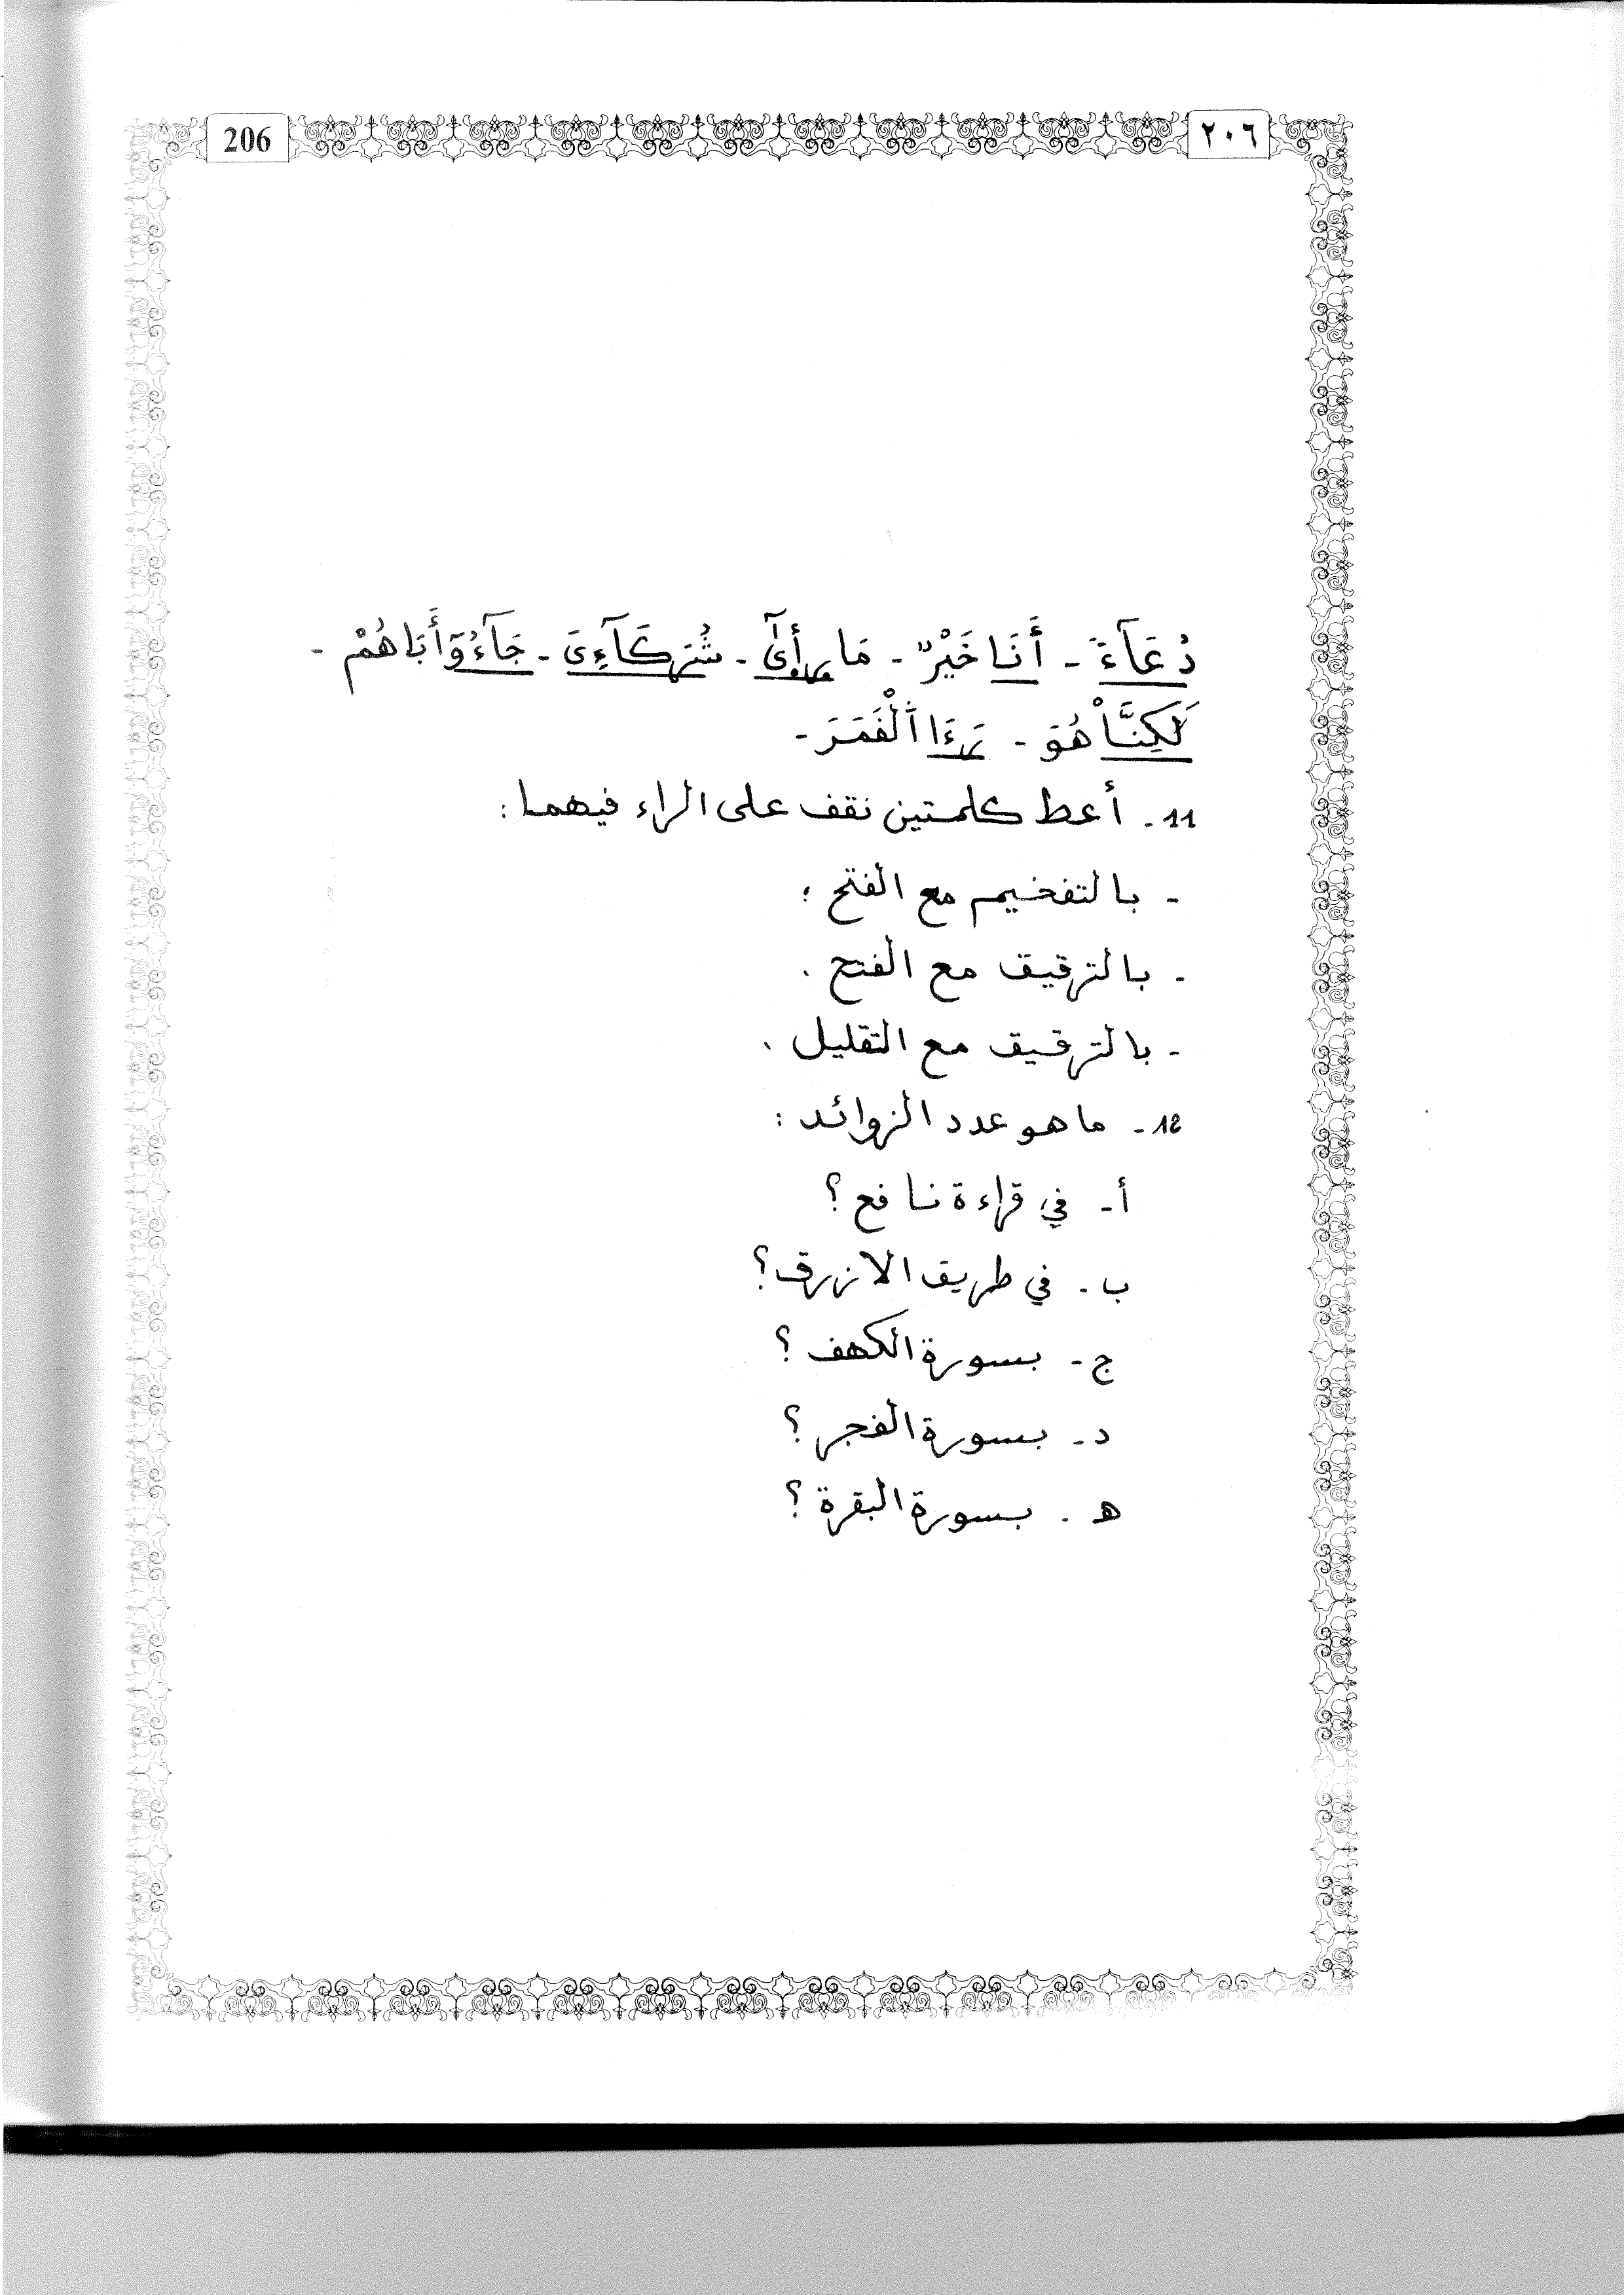 206 ٢٠٦
دُعَآءَ - أَنَا خَيْرٌ - مَا رَأىٰٓ - شُرَكَآءِىَ - جَآءُوٓ أَبَاهُمْ -
لَٰكِنَّا۠ هُوَ - رَءَا اَ۬لْقَمَرَ -
11 - أعط كلمتين نقف على الراء فيهما :
- بالتفخيم مع الفتح ؛
- بالترقيق مع الفتح .
- بالترقيق مع التقليل .
12 - ما هو عدد الزوائد :
أ - في قراءة نافع ؟
ب - في طريق الازرق ؟
ج - بسورة الكهف ؟
د - بسورة الفجر ؟
ه - بسورة البقرة ؟